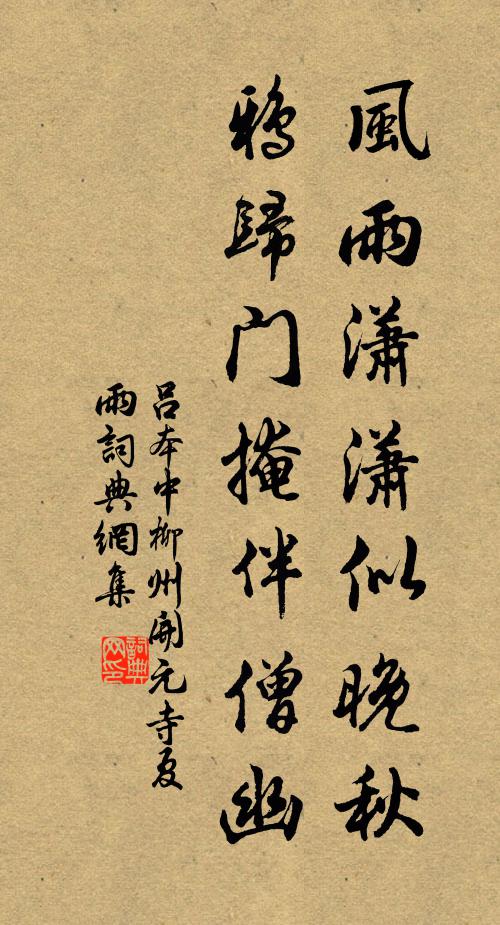 風雨瀟瀟似晚秋
鴉歸門掩伴僧幽
呂本中柳州開元寺夏
雨詞典網集
詞典
网印